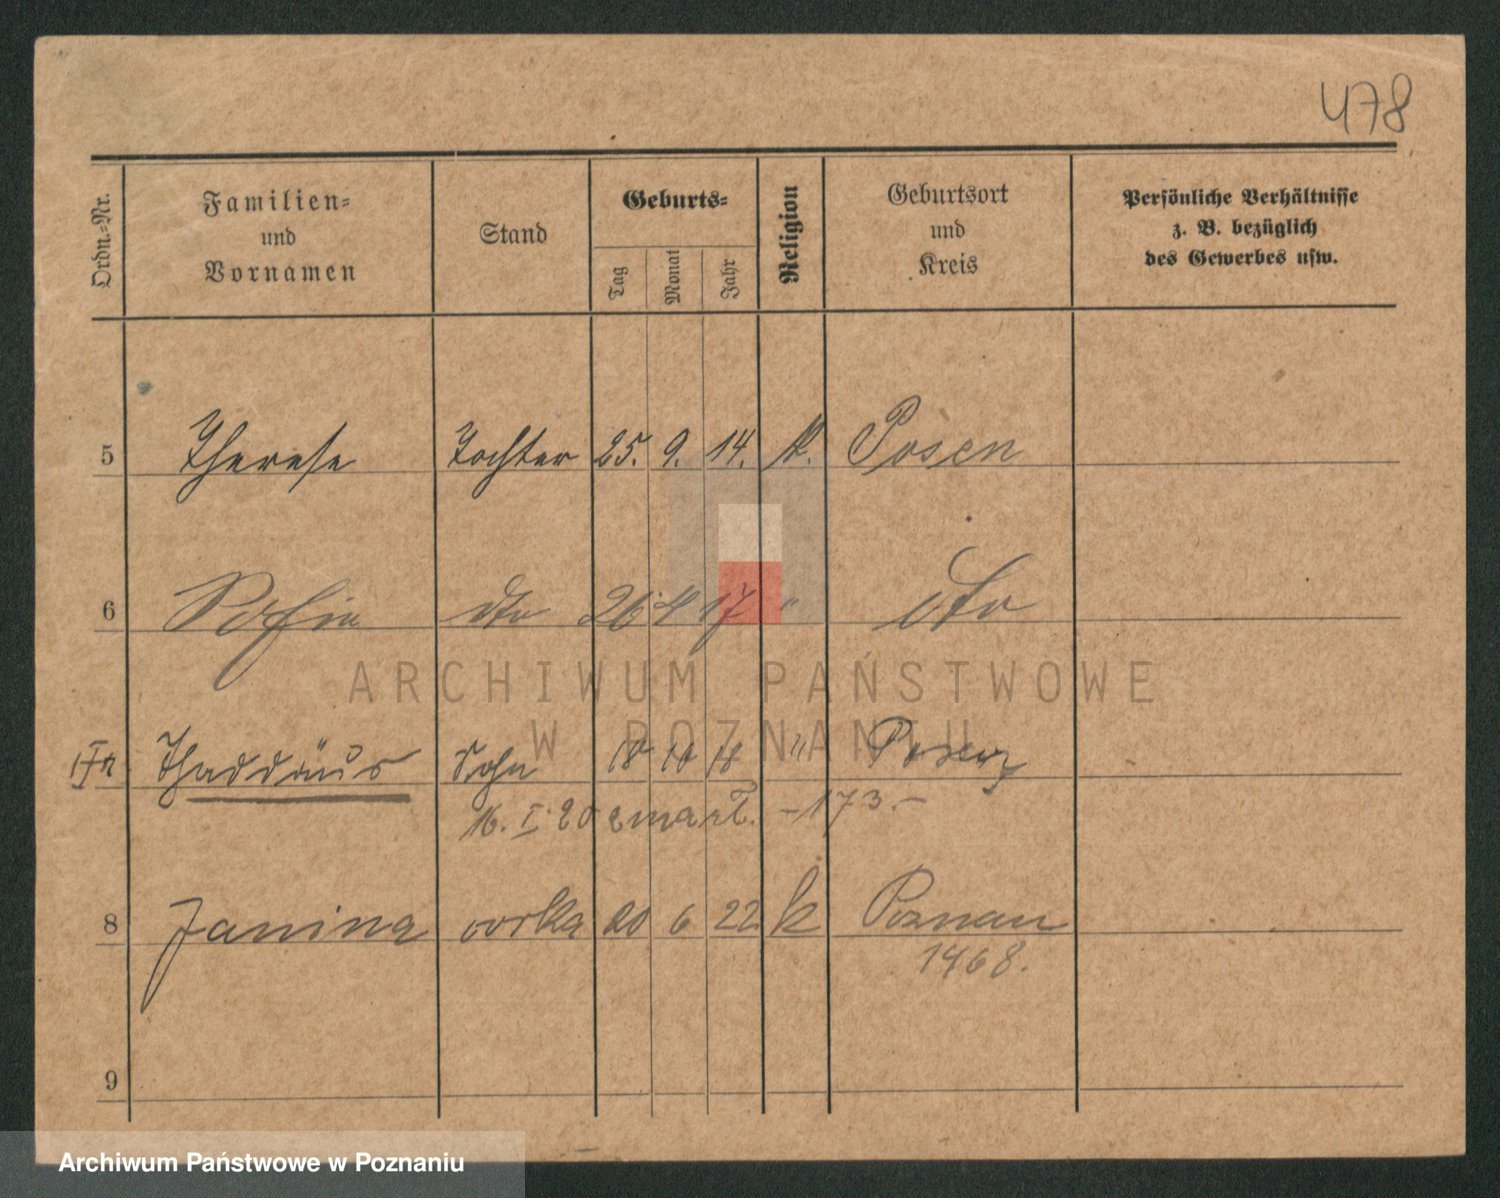 478
Ordn.-Nr.
Familien-
und
Vornamen
Stand
Geburts-
Tag
Monat
Jahr
Religion
Geburtsort
und
Kreis
Persönliche Verhältnisse
z. B. bezüglich
des Gewerbes usw.
5 Therese Tochter 25. 9. 14. k. Posen
6 Sofia dto 26 4 17 " dto
ARCHIWUM PAŃSTWOWE
W POZNANIU
Thaddäus Sohn 18 10 18 " Posen
16. I. 20 zmarł. - 173. -
8 Janina córka 20 6 22 k Poznań
1468.
9
Archiwum Państwowe w Poznaniu